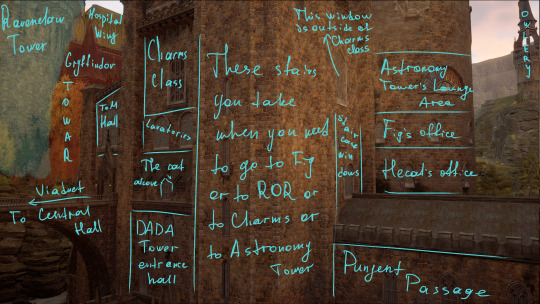 Ravenclaw
Tower
Hospital
Wing
Gryffindor
TOWAR
ToM
Hall
Viaduct
To Central
Hall
Charms
Class
Lavatories
The cat
alcove
DADA
Tower
entrance
hall
These stairs
you take
when you need
to go to Fig
or to ROR or
to Charms or
to Astronomy
Tower
This window
is outside of
Charms
class
Stair
case
win
dows
Astronomy
Tower's Lounge
Area
Fig's office
Hecat's office
Punjent
Passage
OWLERY